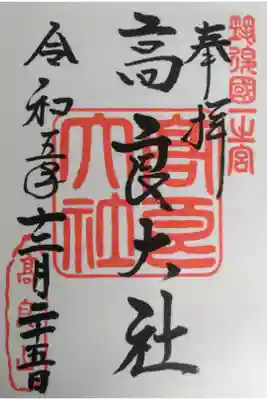 筑後國一之宮
奉拝
高良大社
高良
大社
令和五年十二月二十五日